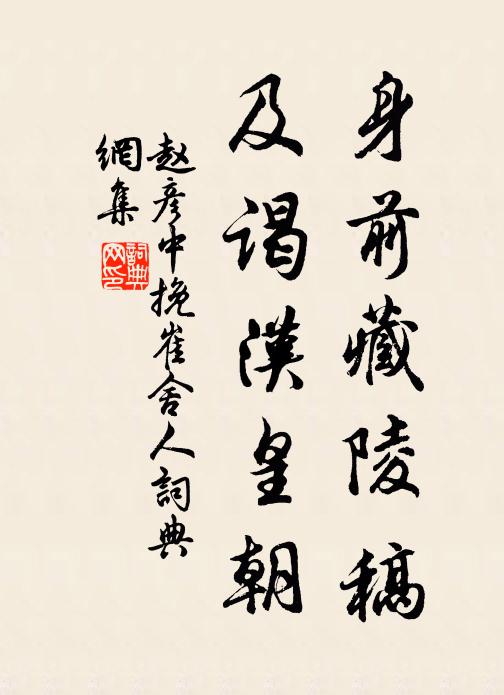 身前藏陵稿
及谒漢皇朝
赵彦中挽崔舍人詞典
網集
詞典
网印